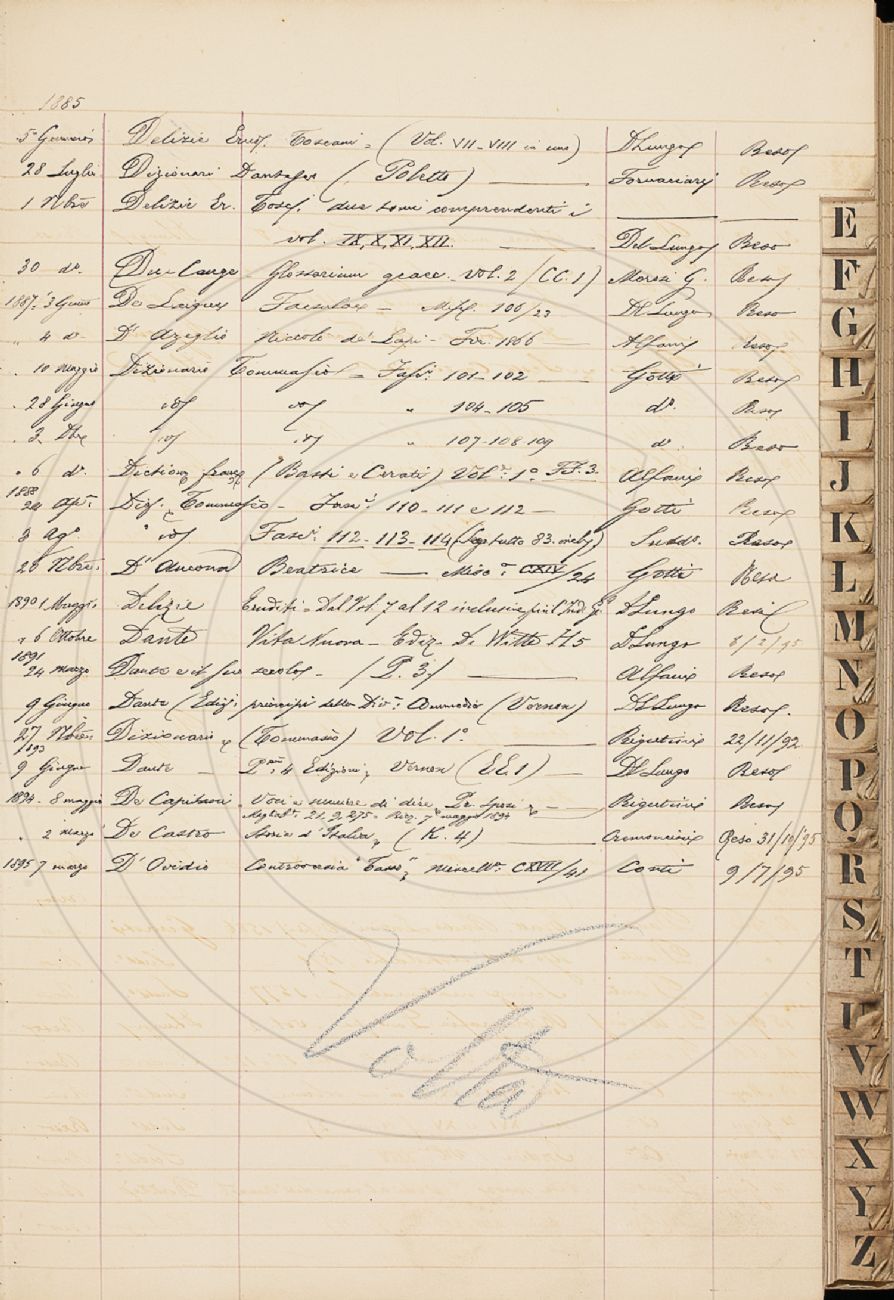 1885
5 Gennaio Delizie Erud. Toscani = (Vol. VII-VIII in uno) DLungo Reso
28 Luglio Dizionari Dantesco (Poletto) Fornaciari Reso
1 Nbre Delizie Er. Tosc. due tomi comprendenti i
vol. IX, X, XI, XII. Del Lungo Reso
30 do. Du-Cange Glossarium graec. vol. 2 (CC.1) Morosi G. Reso
1887. 3 Genn. De Misc. 106/23 Del Lungo Reso
" 4 do D'Azeglio Niccolò de' Lapi - Fir. 1866 Alfani Reso
" 10 maggio Dizionario Tommaseo = Fasc. 101-102 Gotti Reso
" 28 Giugno id id " 104-105 do. Reso
" 3. Xbre id id " 107-108-109 do Reso
" 6 do. Diction. franç. (Basti e Cerati) Vol. 1o FF.3. Alfani Reso
1888
24 Apr. Diz. Tommaseo - Fasc. 110-111 e 112 - Gotti Reso
3 Ago. " id Fasc. 112-113-114 Sudd. Reso
26 Nbre D'Ancona Beatrice Misc. CXIX/24 Gotti Reso
1890 1 Maggio Delizie Eruditi = Dal Vol. 7 al 12 inclusive DLungo Reso
" 6 Ottobre Dante Vita Nuova - Ediz. De Witte H5 DLungo 8/2/95
1891
24 marzo Dante e il suo secolo - (P.3) Alfani Reso
9 Giugno Dante (Ediz. principi della Div. Commedia (Vernon) Del Lungo Reso.
27 Nbre Dizionario (Tommaseo) Vol. 1o Rigutini 22/11/92
1893
9 Giugno Dante 4 Edizioni, Vernon (EE1) Del Lungo Reso
1894 - 8 maggio De Capitani Voci e maniere di dire Rigutini Reso
7 maggio 1894
" 2 marzo De Castro Storia d'Italia, (K.4) Cremoncini Reso 31/10/95
1895 7 marzo D'Ovidio Controversia "Tasso" Miscell. CXVII/41 Conti 9/7/95
Volta
E
F
G
H
I
J
K
L
M
N
O
P
Q
R
S
T
U
V
W
X
Y
Z